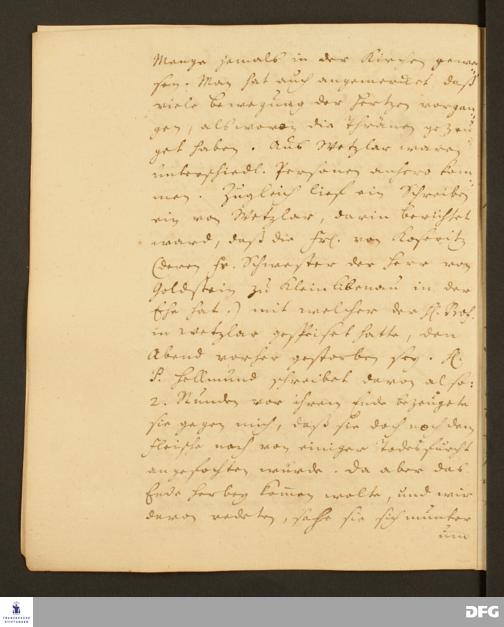 Menge jemals in der Kirchen gewe-
sen. Man hat auch angemercket daß
viele bewegung der Hertzen vorgan-
gen, als wovon die Thränen gezeu-
get haben. Aus Wetzlar waren
unterschiedl. Personen anhero kom-
men. Zugleich lief ein Schreiben
ein von Wetzlar, darin berichtet
ward, daß die Frl. von
(deren Fr. Schwester der Herr von
Goldstein zu Kleinlibenau in der
Ehe hat.) mit welcher der H. Prof.
in Wetzlar gespeiset hatte, den
Abend vorher gestorben sey. H.
P. Hellmund schreibet davon also:
2. Stunden vor ihrem Ende bezeugete
sie gegen mich, daß sie doch noch dem
Fleische nach von einiger Todesfurcht
angefochten würde. Da aber das
Ende herbey kommen wolte, und wir
davon redeten, sahe sie sich munter
um
FRANCKESCHE
STIFTUNGEN
DFG